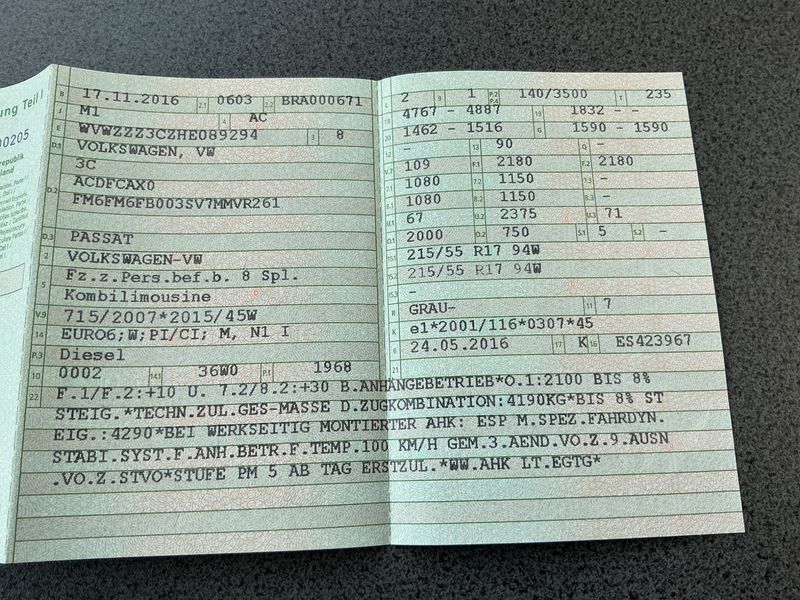 ung Teil I
00205
republik
land
B 17.11.2016 2.1 0603 2.2 BRA000671
J M1 4 AC
E WVWZZZ3CZHE089294 3 8
D.1 VOLKSWAGEN, VW
3C
D.2 ACDFCAX0
FM6FM6FB003SV7MMVR261
D.3 PASSAT
2 VOLKSWAGEN-VW
5 Fz.z.Pers.bef.b. 8 Spl.
Kombilimousine
V.9 715/2007*2015/45W
14 EURO6;W;PI/CI; M, N1 I
P.3 Diesel
10 0002 14.1 36W0 P.1 1968
L 2 9 1 P.2 P.4 140/3500 T 235
18 4767 - 4887 19 1832 - -
20 1462 - 1516 G 1590 - 1590
12 - 13 90 Q -
V.7 109 F.1 2180 F.2 2180
7.1 1080 7.2 1150 7.3 -
8.1 1080 8.2 1150 8.3 -
U.1 67 U.2 2375 U.3 71
O.1 2000 O.2 750 S.1 5 S.2 -
15.1 215/55 R17 94W
15.2 215/55 R17 94W
15.3 -
R GRAU- 11 7
K e1*2001/116*0307*45
6 24.05.2016 17 K 16 ES423967
21
22 F.1/F.2:+10 U. 7.2/8.2:+30 B.ANHÄNGEBETRIEB*O.1:2100 BIS 8%
STEIG.*TECHN.ZUL.GES-MASSE D.ZUGKOMBINATION:4190KG*BIS 8% ST
EIG.:4290*BEI WERKSEITIG MONTIERTER AHK: ESP M.SPEZ.FAHRDYN.
STABI.SYST.F.ANH.BETR.F.TEMP.100 KM/H GEM.3.AEND.VO.Z.9.AUSN
.VO.Z.STVO*STUFE PM 5 AB TAG ERSTZUL.*WW.AHK LT.EGTG*